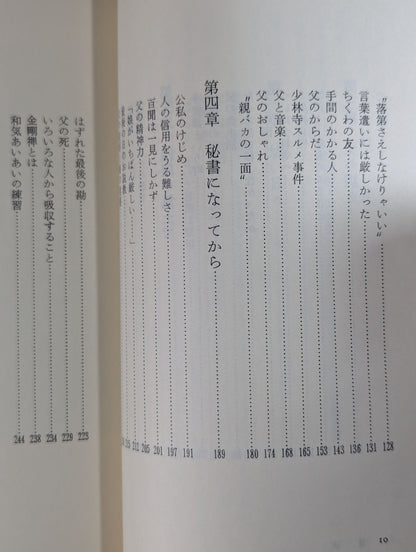 “落第さえしなけりゃいい”……128
言葉遣いには厳しかった……131
ちくわの友……136
手間のかかる人……143
父のからだ……148
少林寺スルメ事件……165
父と音楽……168
父のおしゃれ……174
“親バカの一面”……180
第四章 秘書になってから……189
公私のけじめ……191
人の信用をうる難しさ……197
百聞は一見にしかず……201
父の精神力……205
「娘がいちばん厳しい……」……212
はずれた最後の勘……223
父の死……229
いろいろな人から吸収すること……234
金剛禅とは……238
和気あいあいの練習……244
10